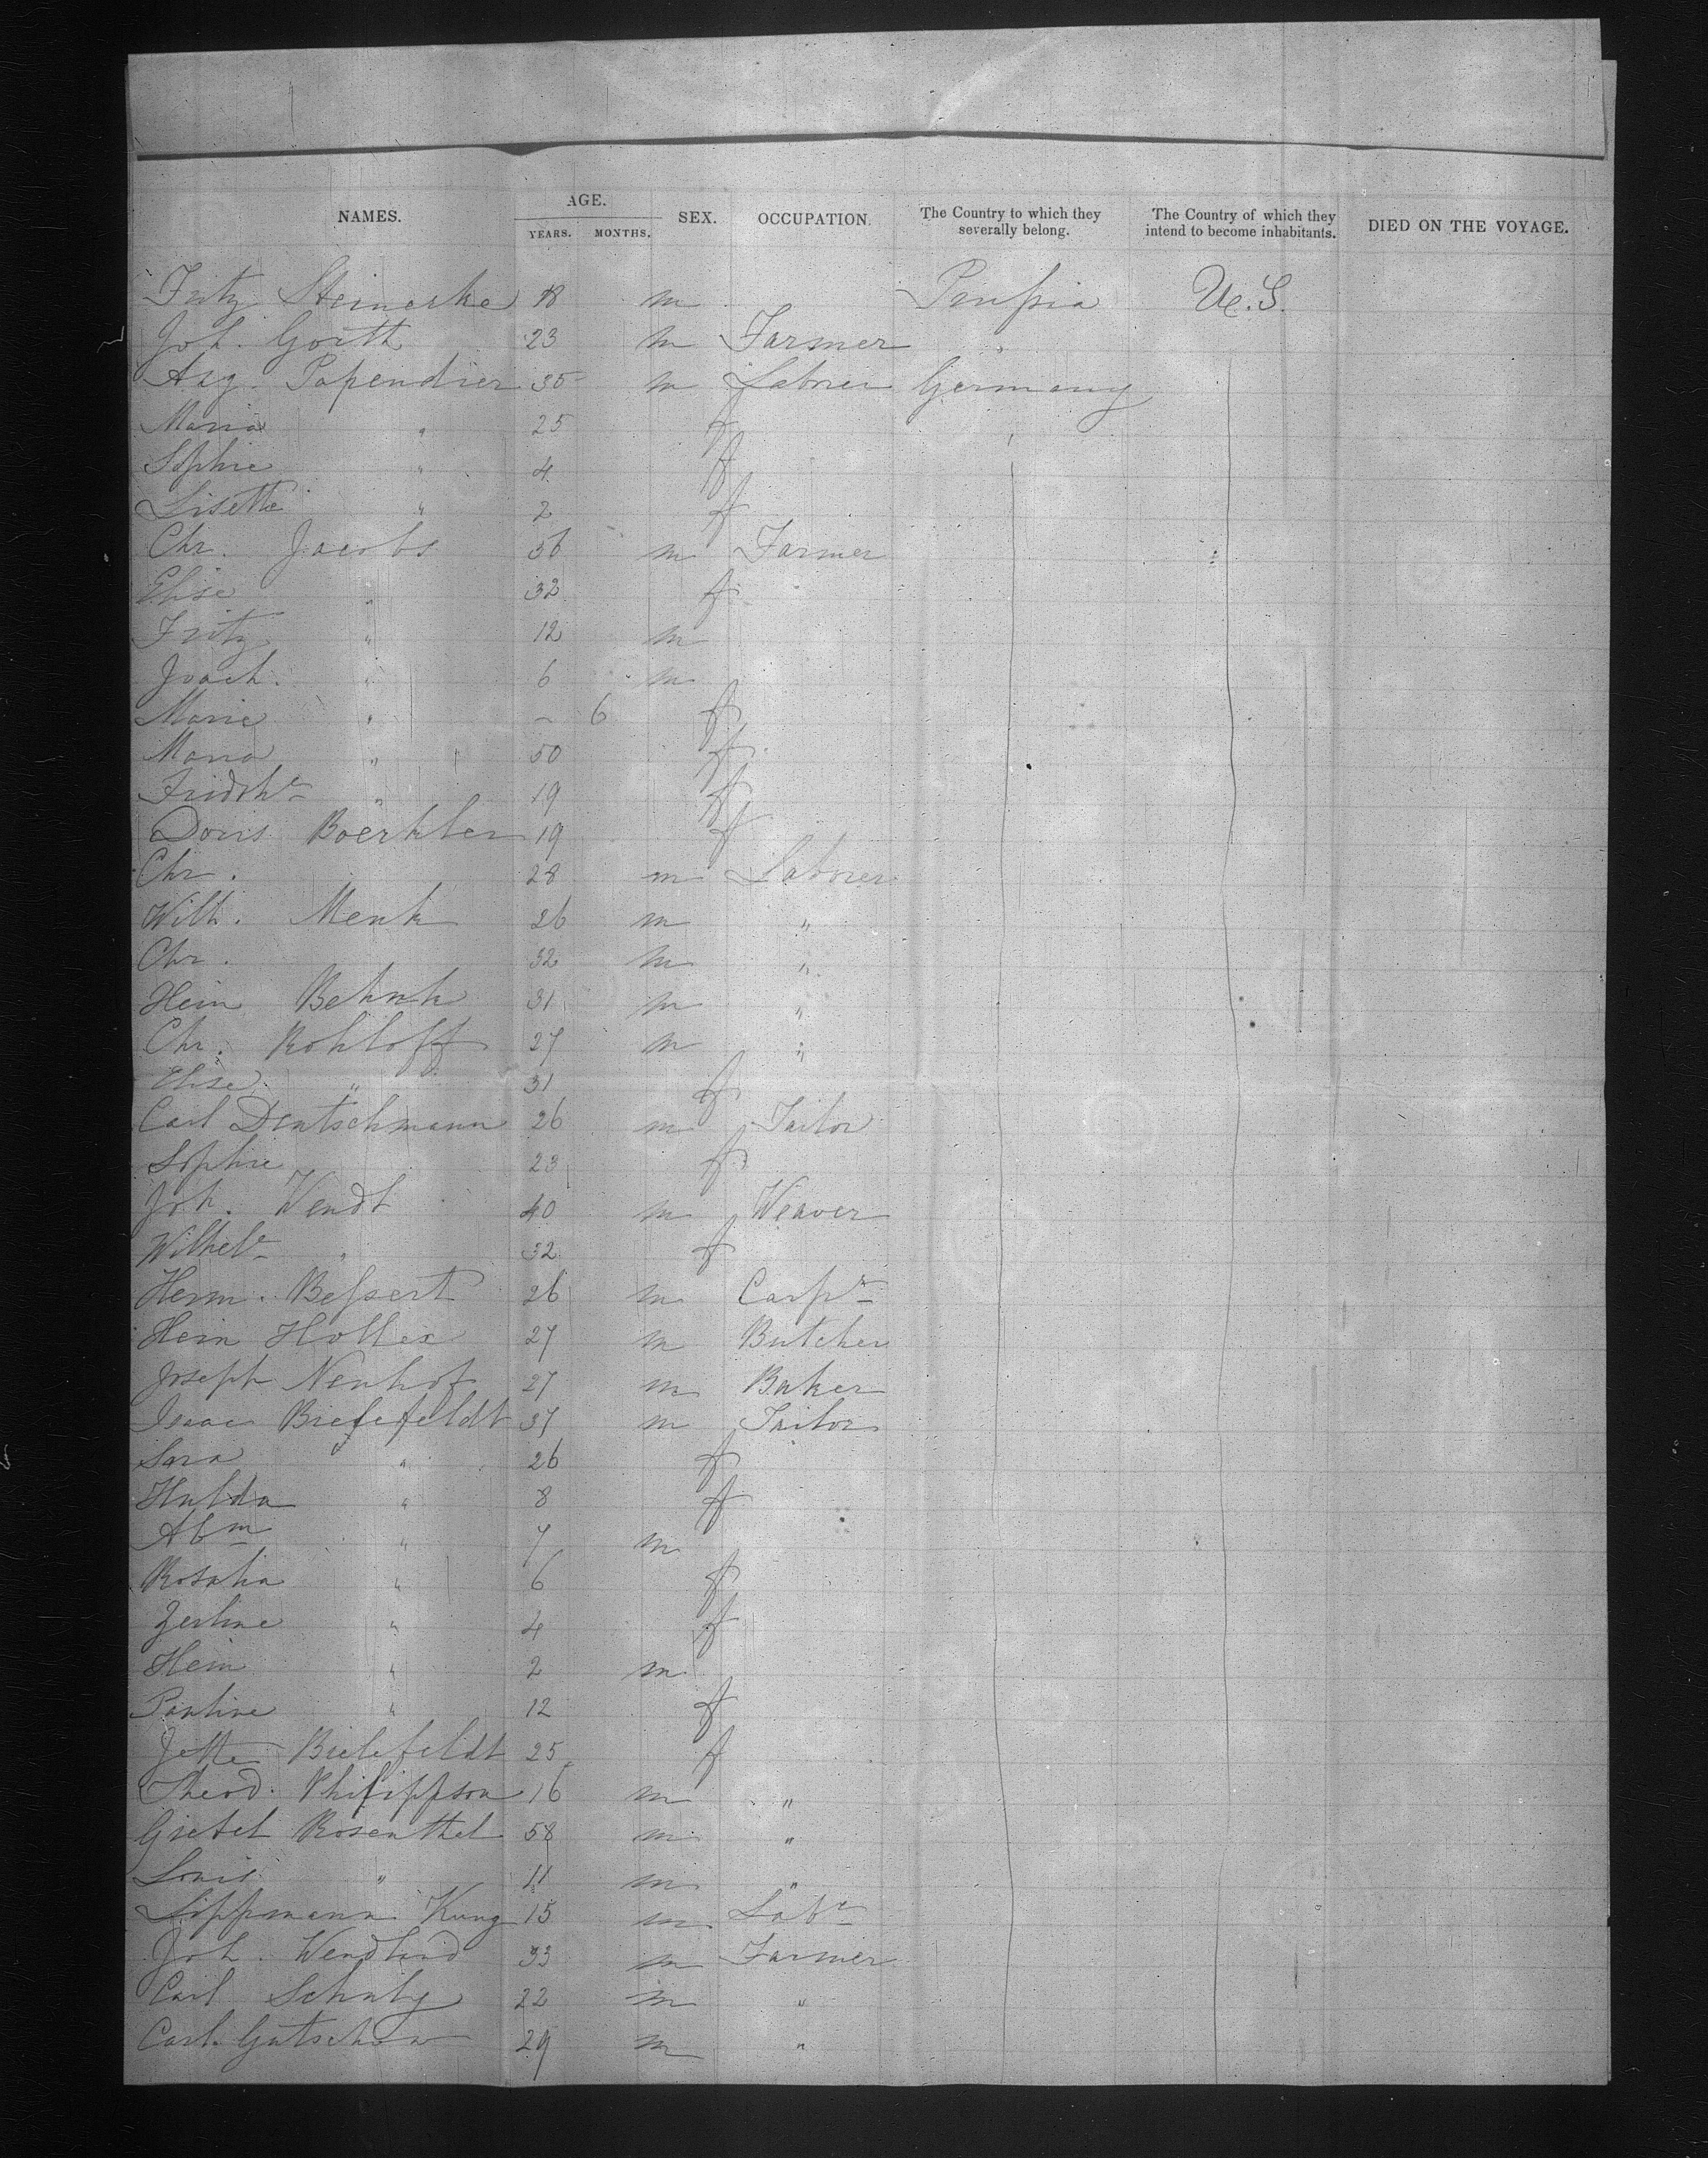 NAMES. AGE. YEARS. MONTHS. SEX. OCCUPATION. The Country to which they severally belong. The Country of which they intend to become inhabitants. DIED ON THE VOYAGE.
Fritz Steinecke 18 m Prussia U.S.
Joh. Goith 23 m Farmer "
Aug. Papendier 35 m Laborer Germany
Maria " 25 f "
Sophie " 4 f
Lisette " 2 f
Chr. Jacobs 36 m Farmer
Elise " 32 f
Fritz " 12 m
Joach. " 6 m
Marie " – 6 f
Maria " 50 f
Fridrke " 19 f
Doris Boerkler 19 f
Chr. 28 m Laborer
Wilh. Menk 26 m "
Chr. 32 m "
Hein Behnk 31 m "
Chr. Rohloff 27 m "
Elise " 31 f
Carl Deutschmann 26 m Tailor
Sophie 23 f
Joh. Wendt 40 m Weaver
Wilhele " 32 f
Herm. Bessert 26 m Carpr
Hein Holler 27 m Butcher
Joseph Neuhof 27 m Baker
Isaac Bielefeldt 37 m Tailor
Sara " 26 f
Hulda " 8 f
Abm " 7 m
Rosalia " 6 f
Zerline " 4 f
Hein " 2 m
Pauline " 12 f
Jette Bielefeldt 25 f
Theod. Philippson 16 m "
Gretel Rosenthal 58 m "
Louis " 11 m "
Lippmann Kung 15 m Labr
Joh. Wendland 33 m Farmer
Carl Schulz 22 m "
Carl Gutschow 29 m "